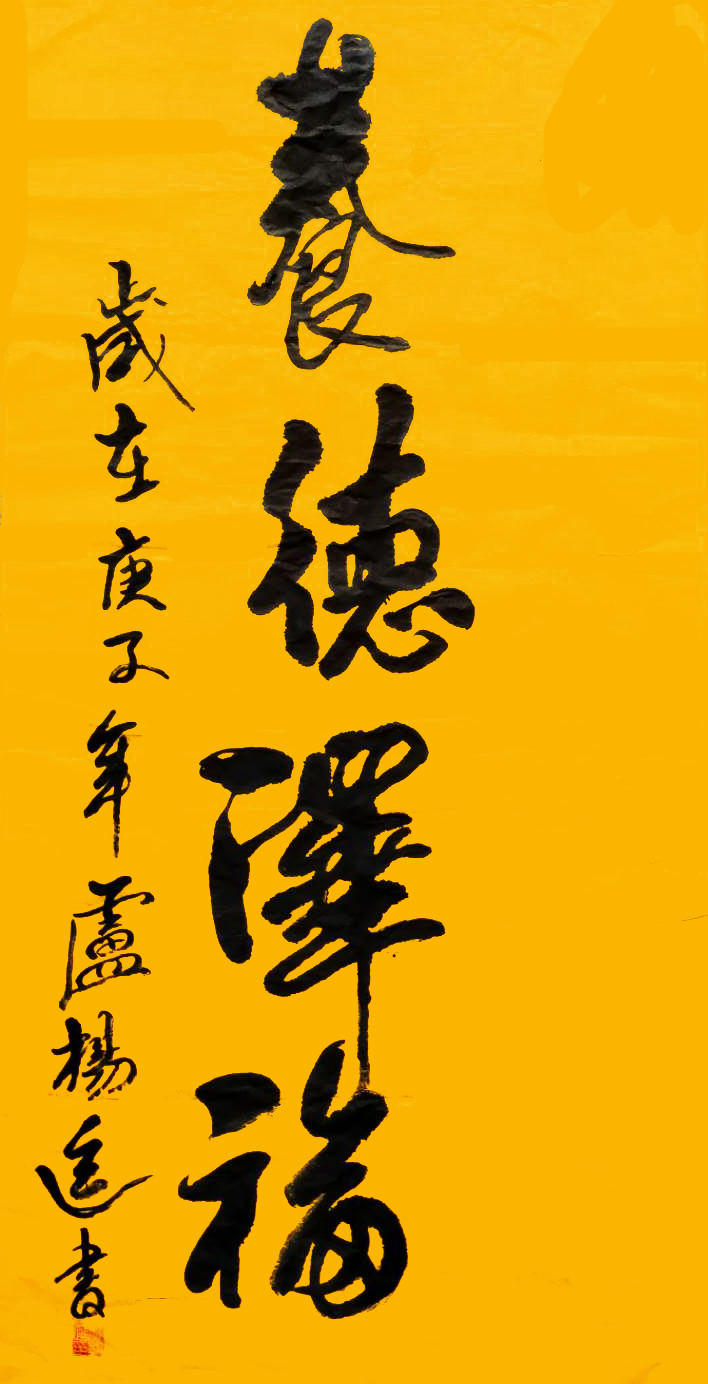 養德澤福
歲在庚子年盧楊廷書